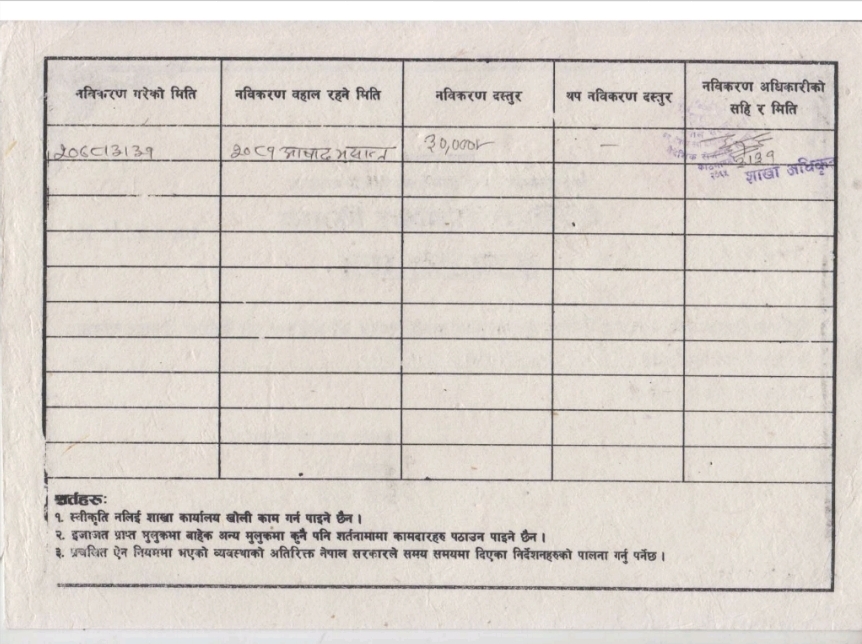 नविकरण गरेको मिति नविकरण वहाल रहने मिति नविकरण दस्तुर थप नविकरण दस्तुर नविकरण अधिकारीको
सहि र मिति
२०८१ ३०,०००।- -
शाखा अधिकृत
शर्तहरुः
१. स्वीकृति नलिई शाखा कार्यालय खोली काम गर्न पाइने छैन ।
२. इजाजत प्राप्त मुलुकमा बाहेक अन्य मुलुकमा कुनै पनि शर्तनामामा कामदारहरु पठाउन पाइने छैन ।
३. प्रचलित ऐन नियममा भएको व्यवस्थाको अतिरिक्त नेपाल सरकारले समय समयमा दिएका निर्देशनहरुको पालना गर्नु पर्नेछ ।